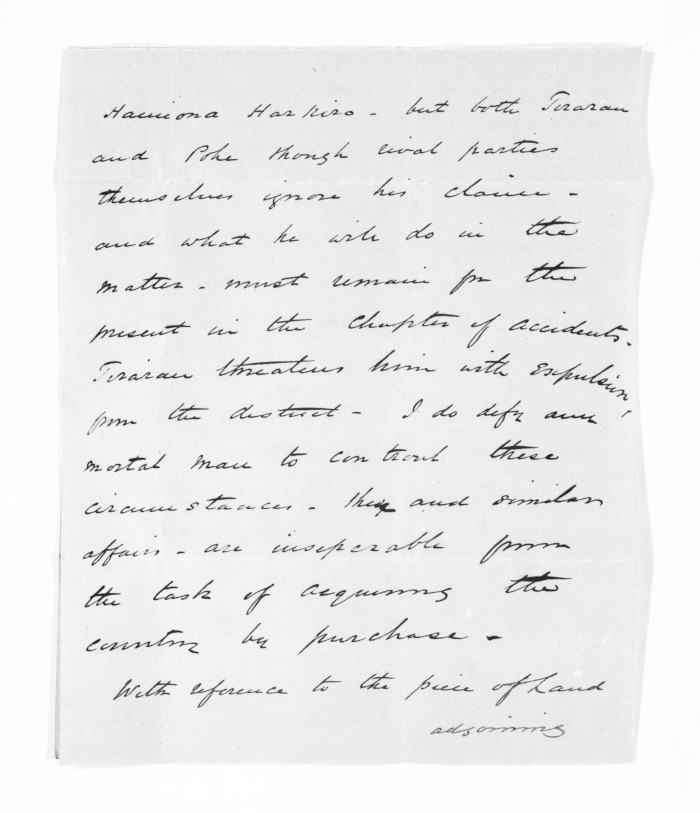 Hamiona Harkiro - but both Tirarau
and Poke though rival parties
themselves ignore his claim -
and what he will do in the
matter - must remain for the
present in the chapter of accidents -
Tirarau threatens him with expulsion,
from the district - I do defy any
mortal man to controul these
circumstances - they and similar
affairs - are inseperable from
the task of acquiring the
country by purchase -
With reference to the piece of land
adjoining